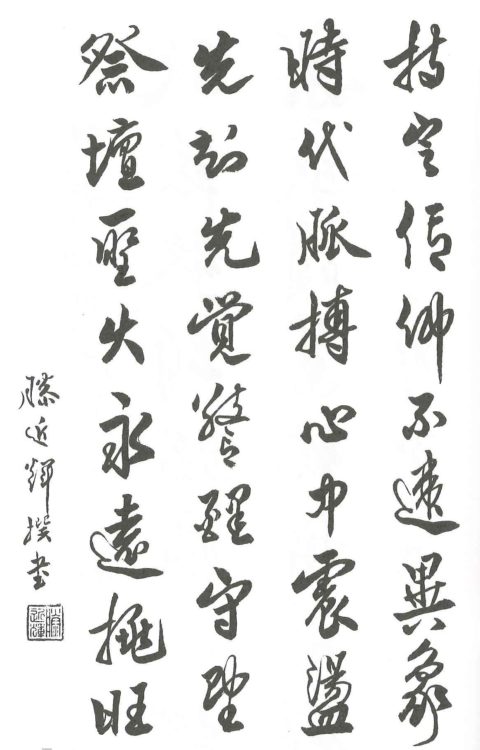 持定信仰不違異象
時代脈搏心中震盪
先知先覺警醒守望
祭壇聖火永遠挑旺
滕近輝撰書
滕近輝